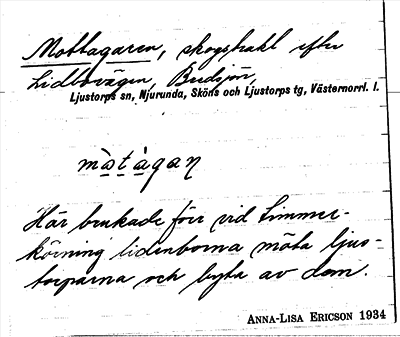 Mottagaren, skogstrakt efter
Lidbovägen, Bredsjön,
Ljustorps sn, Njurunda, Sköns och Ljustorps tg, Västernorrl. l.
Här brukade förr vid timmer-
körning lidenborna möta ljus-
torparna och byta av dem.
ANNA-LISA ERICSON 1934